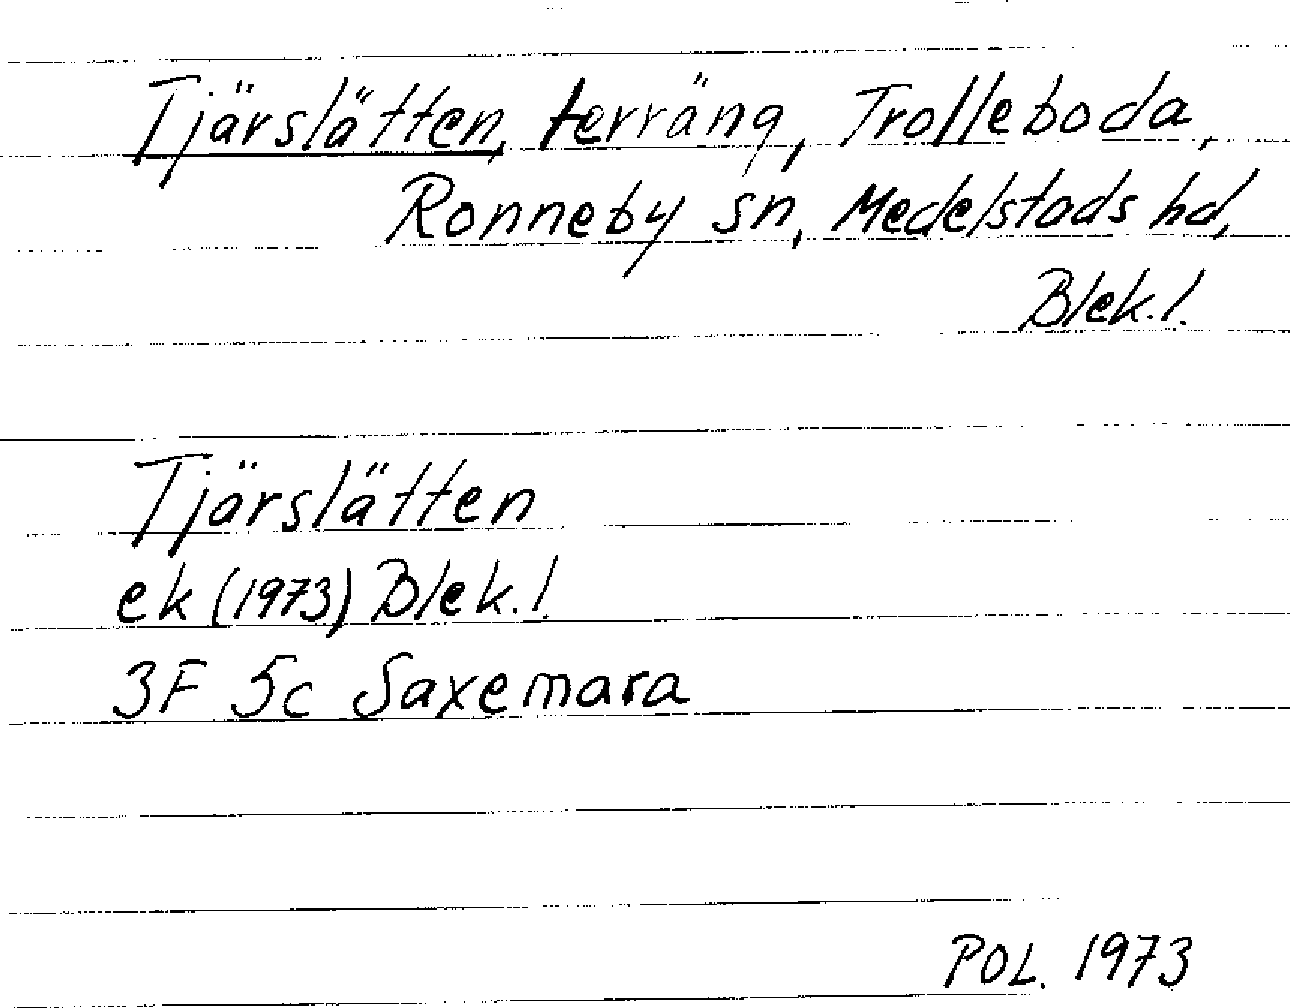 Tjärslätten, terräng, Trolleboda,
Ronneby sn, Medelstads hd,
Blek.l.
Tjärslätten
ek (1973) Blek.l.
3F 5c Saxemara
POL. 1973